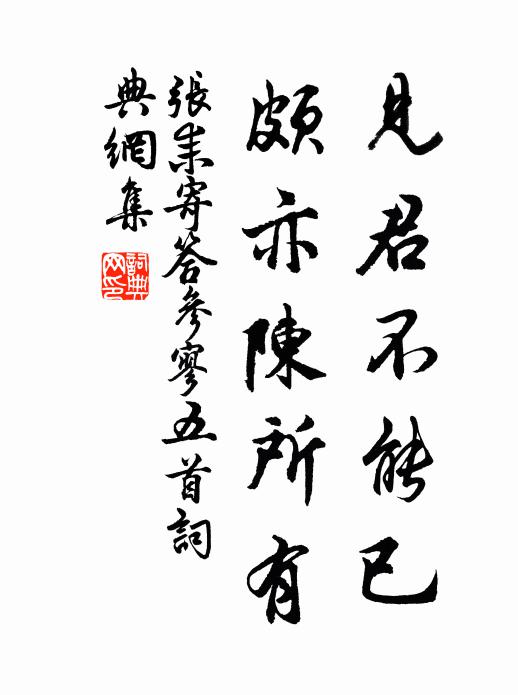 見君不能已
頗亦陳所有
張耒寄答參寥五首詞
典網集
詞典网印